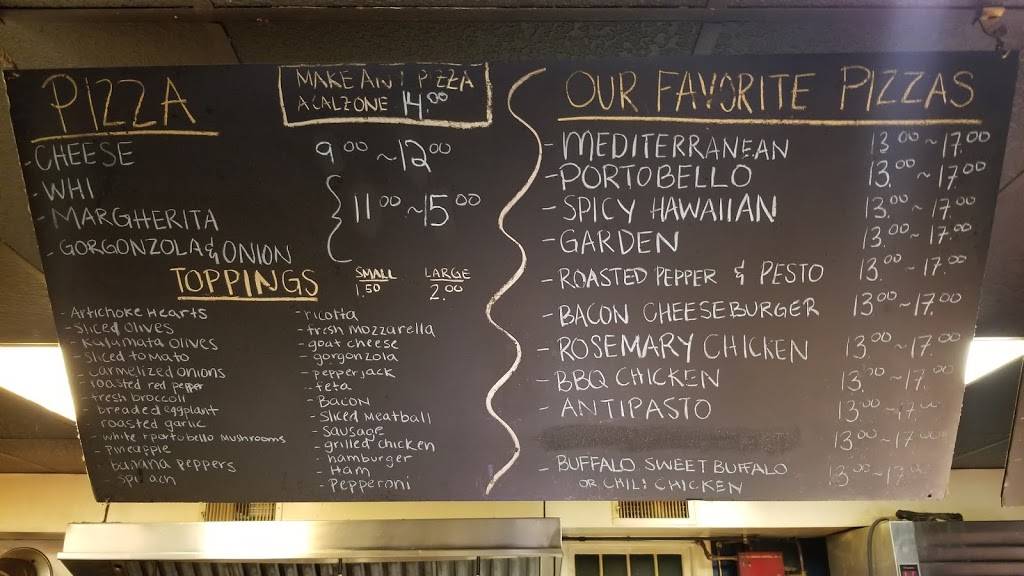 PIZZA
MAKE ANY PIZZA
A CALZONE 14.00
- CHEESE 9.00 ~ 12.00
- WHI
- MARGHERITA 11.00 ~ 15.00
- GORGONZOLA & ONION
TOPPINGS
SMALL LARGE
1.50 2.00
- Artichoke Hearts
- Sliced Olives
- Kalamata Olives
- Sliced tomato
- Carmelized onions
- roasted red pepper
- fresh broccoli
- breaded eggplant
- roasted garlic
- white + portobello mushrooms
- pineapple
- banana peppers
- spi ach
- ricotta
- fresh mozzarella
- goat cheese
- gorgonzola
- pepperjack
- feta
- Bacon
- Sliced Meatball
- Sausage
- grilled chicken
- hamburger
- Ham
- Pepperoni
OUR FAVORITE PIZZAS
- MEDITERRANEAN 13.00 ~ 17.00
- PORTOBELLO 13.00 ~ 17.00
- SPICY HAWAIIAN 13.00 ~ 17.00
- GARDEN 13.00 ~ 17.00
- ROASTED PEPPER & PESTO 13.00 ~ 17.00
- BACON CHEESEBURGER 13.00 ~ 17.00
- ROSEMARY CHICKEN 13.00 ~ 17.00
- BBQ CHICKEN 13.00 ~ 17.00
- ANTIPASTO 13.00 ~ 17.00
13.00 ~ 17.00
- BUFFALO SWEET BUFFALO
OR CHILI CHICKEN 13.00 ~ 17.00